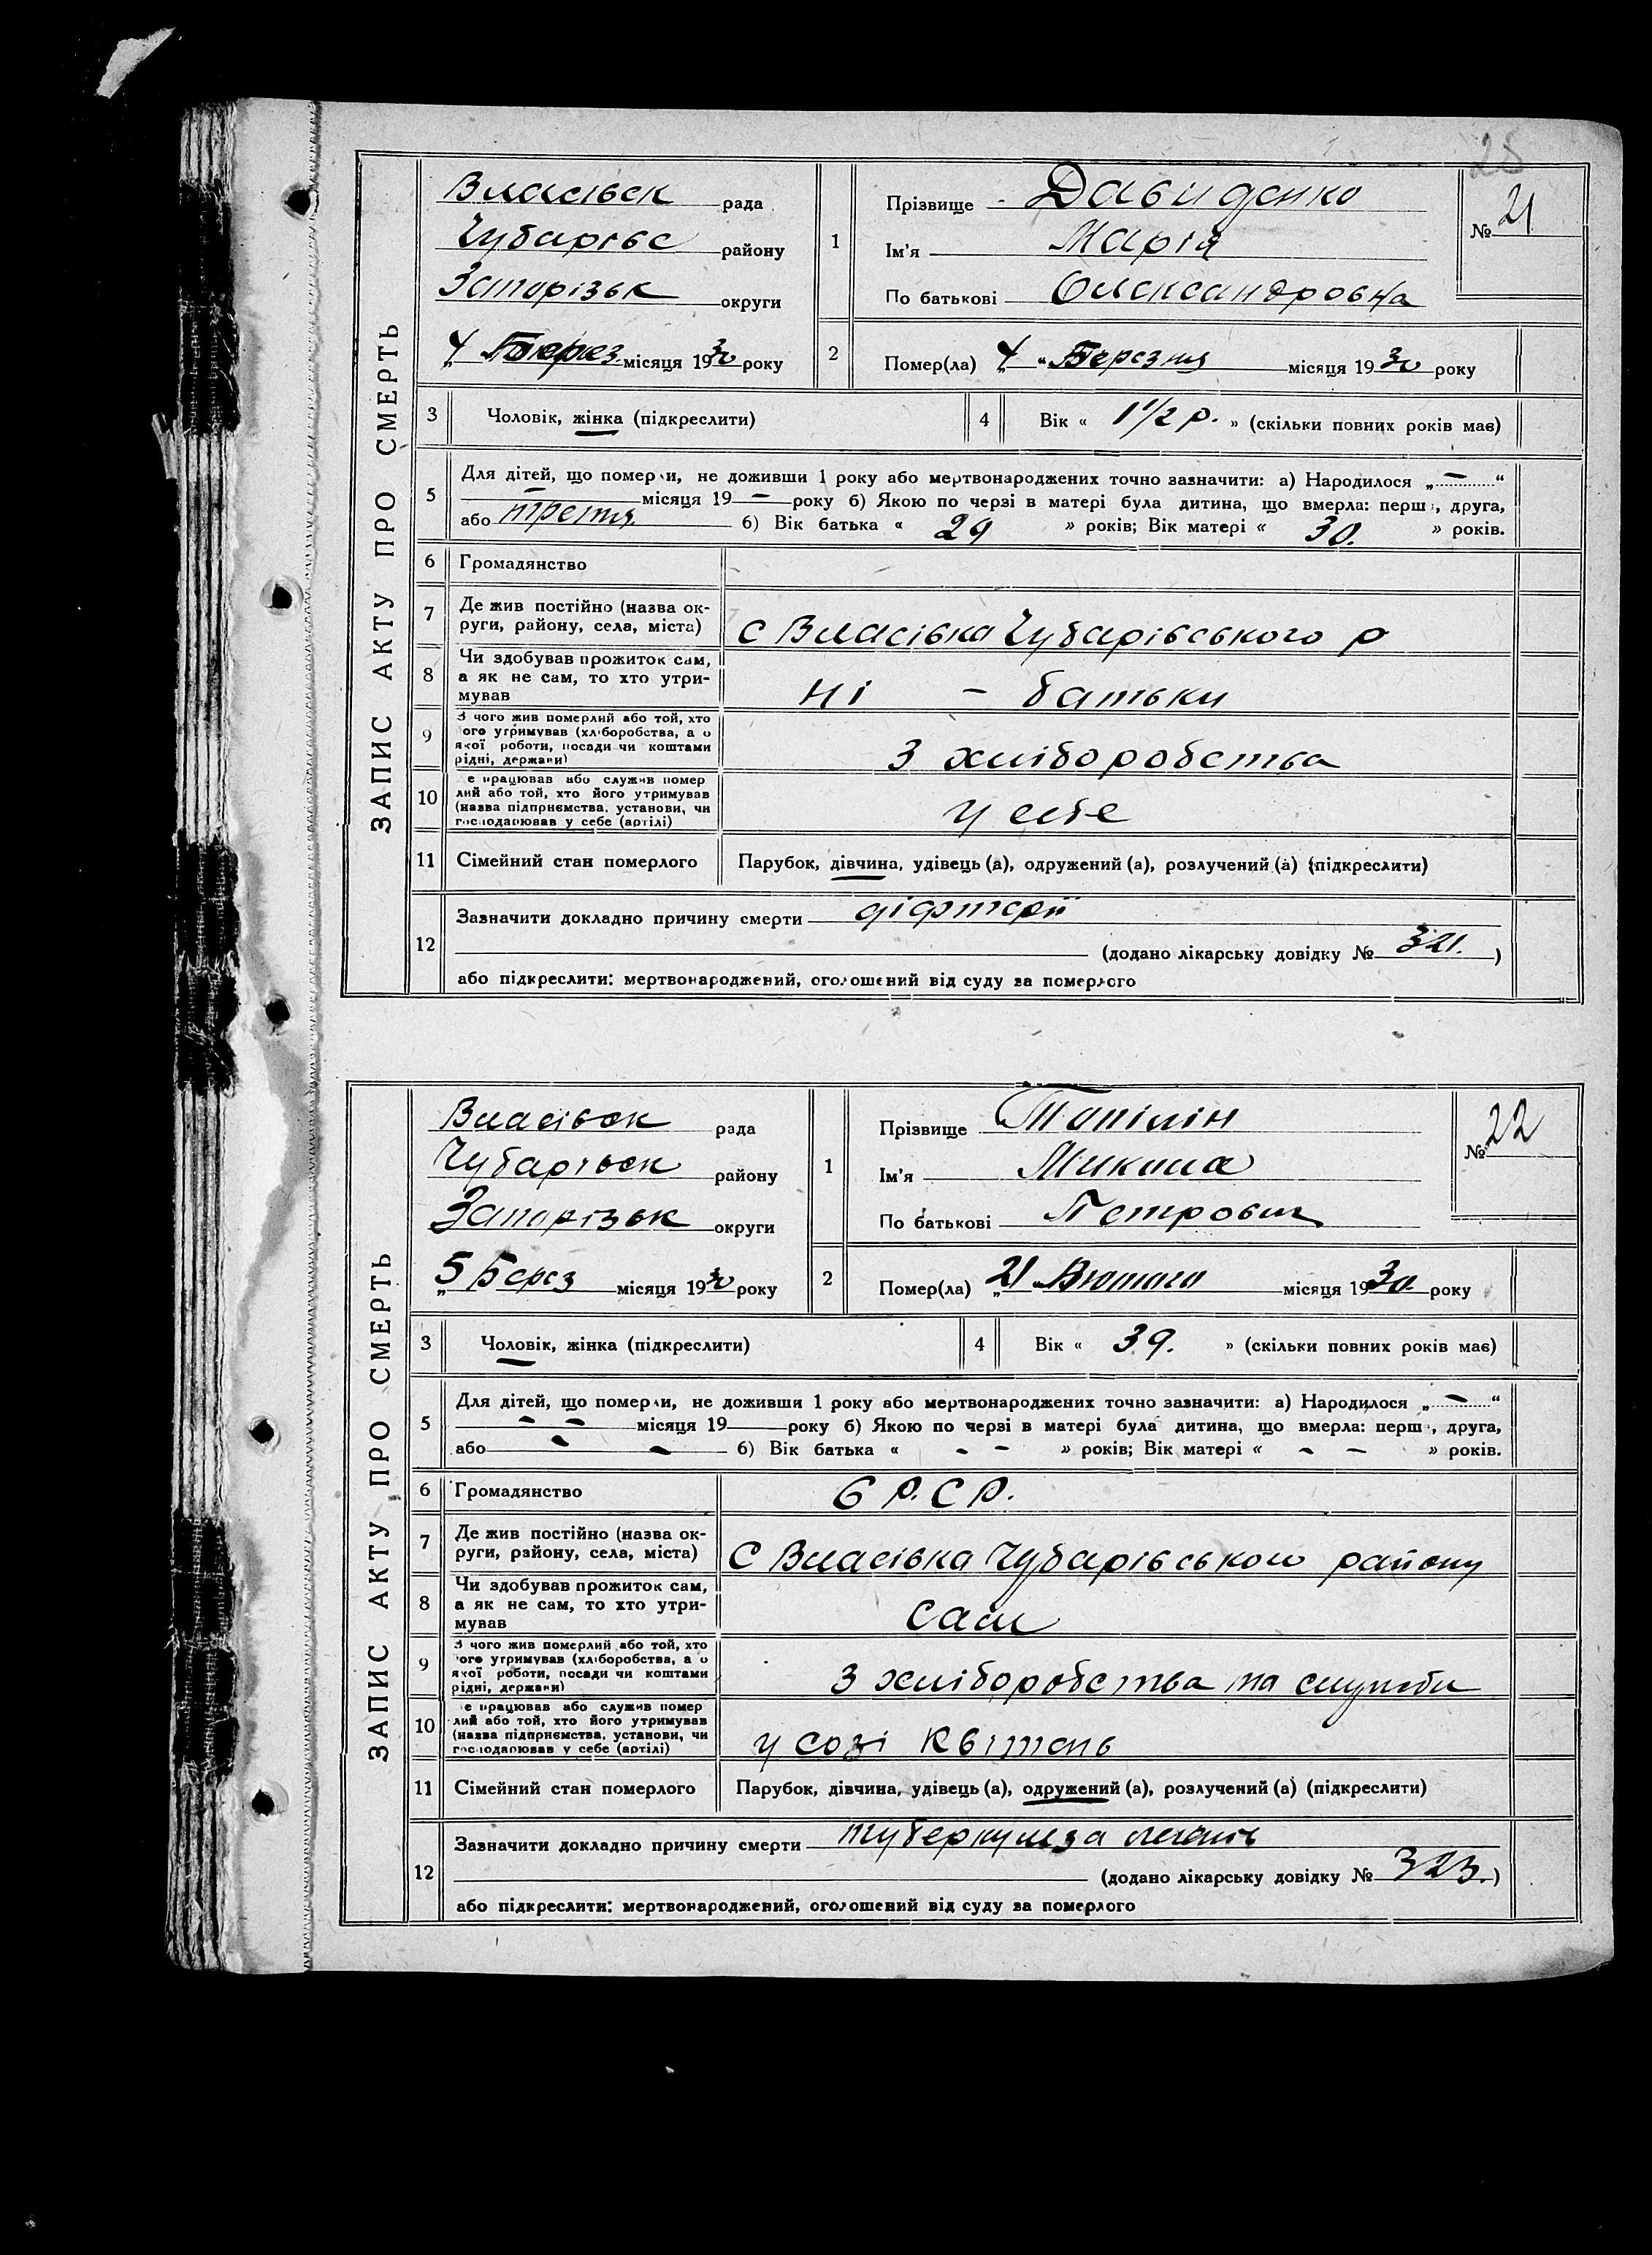 28
ЗАПИС АКТУ ПРО СМЕРТЬ
Власівск рада
Чубарівс району
Запорізьк округи
„4 Берез місяця 1930 року
1 Прізвище Давиденко
Ім'я Марія
По батькові Олександровна
№ 21
2 Помер(ла) „4 " Березня місяця 1930 року
3 Чоловік, жінка (підкреслити)
4 Вік « 1 1/2 р. » (скільки повних років має)
5 Для дітей, що померли, не доживши 1 року або мертвонароджених точно зазначити: а) Народилося „ — “
— місяця 19 — року б) Якою по черзі в матері була дитина, що вмерла: перш , друга,
або третя. б) Вік батька « 29 » років; Вік матері « 30. » років.
6 Громадянство
7 Де жив постійно (назва ок-
руги, району, села, міста) С Власівка Чубарівського р
8 Чи здобував прожиток сам,
а як не сам, то хто утри-
мував ні – батьки
9 З чого жив померлий або той, хто
ого утримував (хліборобства, а о
якої роботи, посади чи коштами
рідні, держави) З хліборобства
10 е працював або служив помер
лий або той, хто його утримував
(назва підприємства, установи, чи
господарював у себе (артілі) у себе
11 Сімейний стан померлого Парубок, дівчина, удівець (а), одружений (а), розлучений (а) (підкреслити)
12 Зазначити докладно причину смерти діфтерії
(додано лікарську довідку № 321. )
або підкреслити: мертвонароджений, оголошений від суду за померлого
ЗАПИС АКТУ ПРО СМЕРТЬ
Власівск рада
Чубарівск району
Запорізьк округи
„5 Берез місяця 1930 року
1 Прізвище Топілін
Ім'я Микола
По батькові Петрович
№ 22
2 Помер(ла) „21 " Лютого місяця 1930. року
3 Чоловік, жінка (підкреслити)
4 Вік « 39. » (скільки повних років має)
5 Для дітей, що померли, не доживши 1 року або мертвонароджених точно зазначити: а) Народилося „ — “
– – місяця 19 року б) Якою по черзі в матері була дитина, що вмерла: перш , друга,
або - - б) Вік батька « - - » років; Вік матері « - - » років.
6 Громадянство С Р. С Р.
7 Де жив постійно (назва ок-
руги, району, села, міста) С Власівка Чубарівського району
8 Чи здобував прожиток сам,
а як не сам, то хто утри-
мував сам
9 З чого жив померлий або той, хто
ого утримував (хліборобства, а о
якої роботи, посади чи коштами
рідні, держави) З хліборобства та служби
10 е працював або служив помер
лий або той, хто його утримував
(назва підприємства, установи, чи
господарював у себе (артілі) у созі Квітень
11 Сімейний стан померлого Парубок, дівчина, удівець (а), одружений (а), розлучений (а) (підкреслити)
12 Зазначити докладно причину смерти туберкульоза легенів
(додано лікарську довідку № 323. )
або підкреслити: мертвонароджений, оголошений від суду за померлого